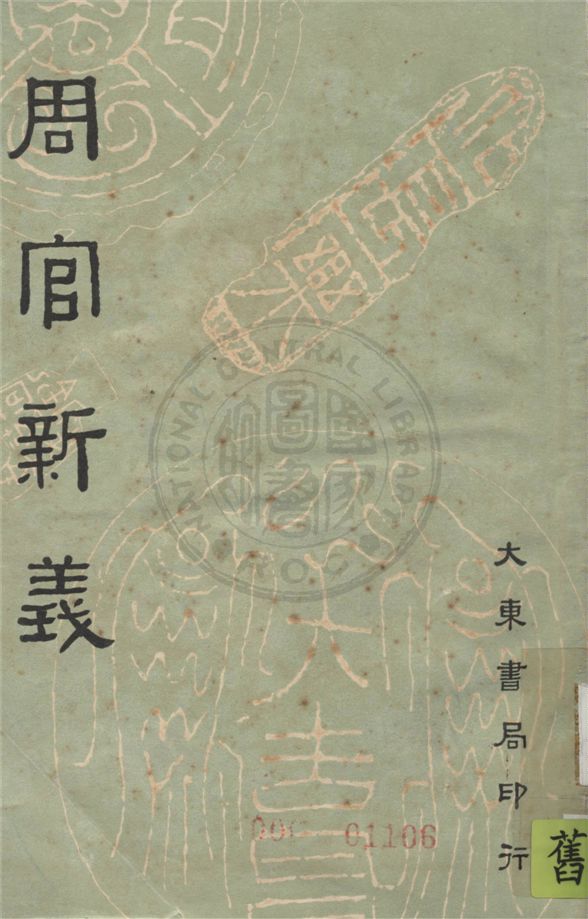 周官新義
大東書局印行
舊
NATIONAL CENTRAL LIBRARY
R.O.C.
國家圖書館
01106
大吉